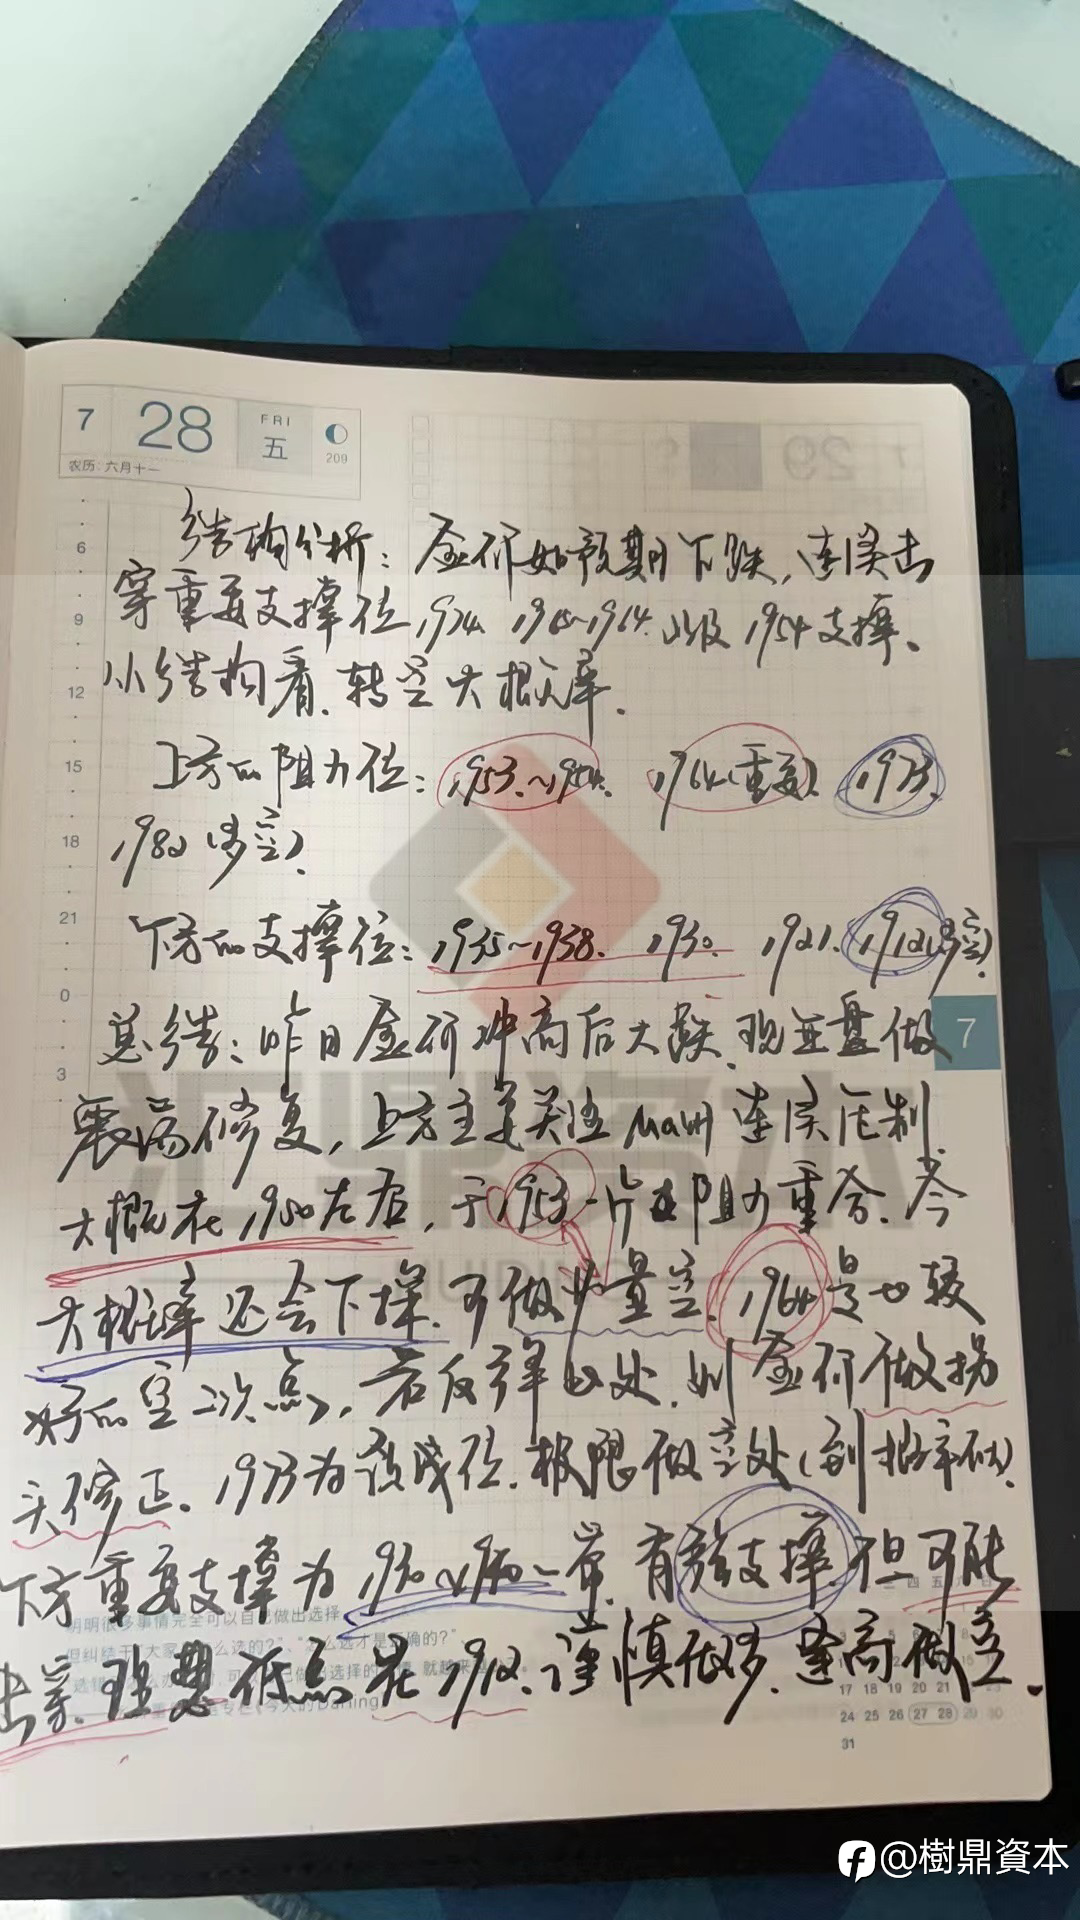 7 28 FRI 五 209
农历: 六月十一
29
结构分析: 金价如预期下跌,连续击
6
穿重要支撑位1974. 1965~1964. 以及 1954支撑、
9
小结构看、转空大概率.
12
上方的阻力位: 1953.~1954. 1964(重要). 1973.
15
1982(多空).
18
下方的支撑位: 1935~1938. 1930. 1921. 1912(多空).
21
0
总结: 昨日金价冲高后大跌、现亚盘做
7
3
震荡修复, 上方主要关注 连续压制、
大概在1950左右, 于1953一片 阻力重合. 今
大概率还会下探. 可做少量空. 1964是 较
好的空 点, 若反弹 此处. 则金价做拐
头修正、1973为 线位. 极限做空处(到概率低).
下方重要支撑为 一带. 有 支撑. 但可能
击穿. 理想低点在1912. 谨慎做多. 逢高做空.
明明很多事情完全可以自己做出选择
但纠结于“大家 么选的?”、“怎么选才是正确的?”
17 18 19 20 21
24 25 26 27 28 29 30
31
@樹鼎資本